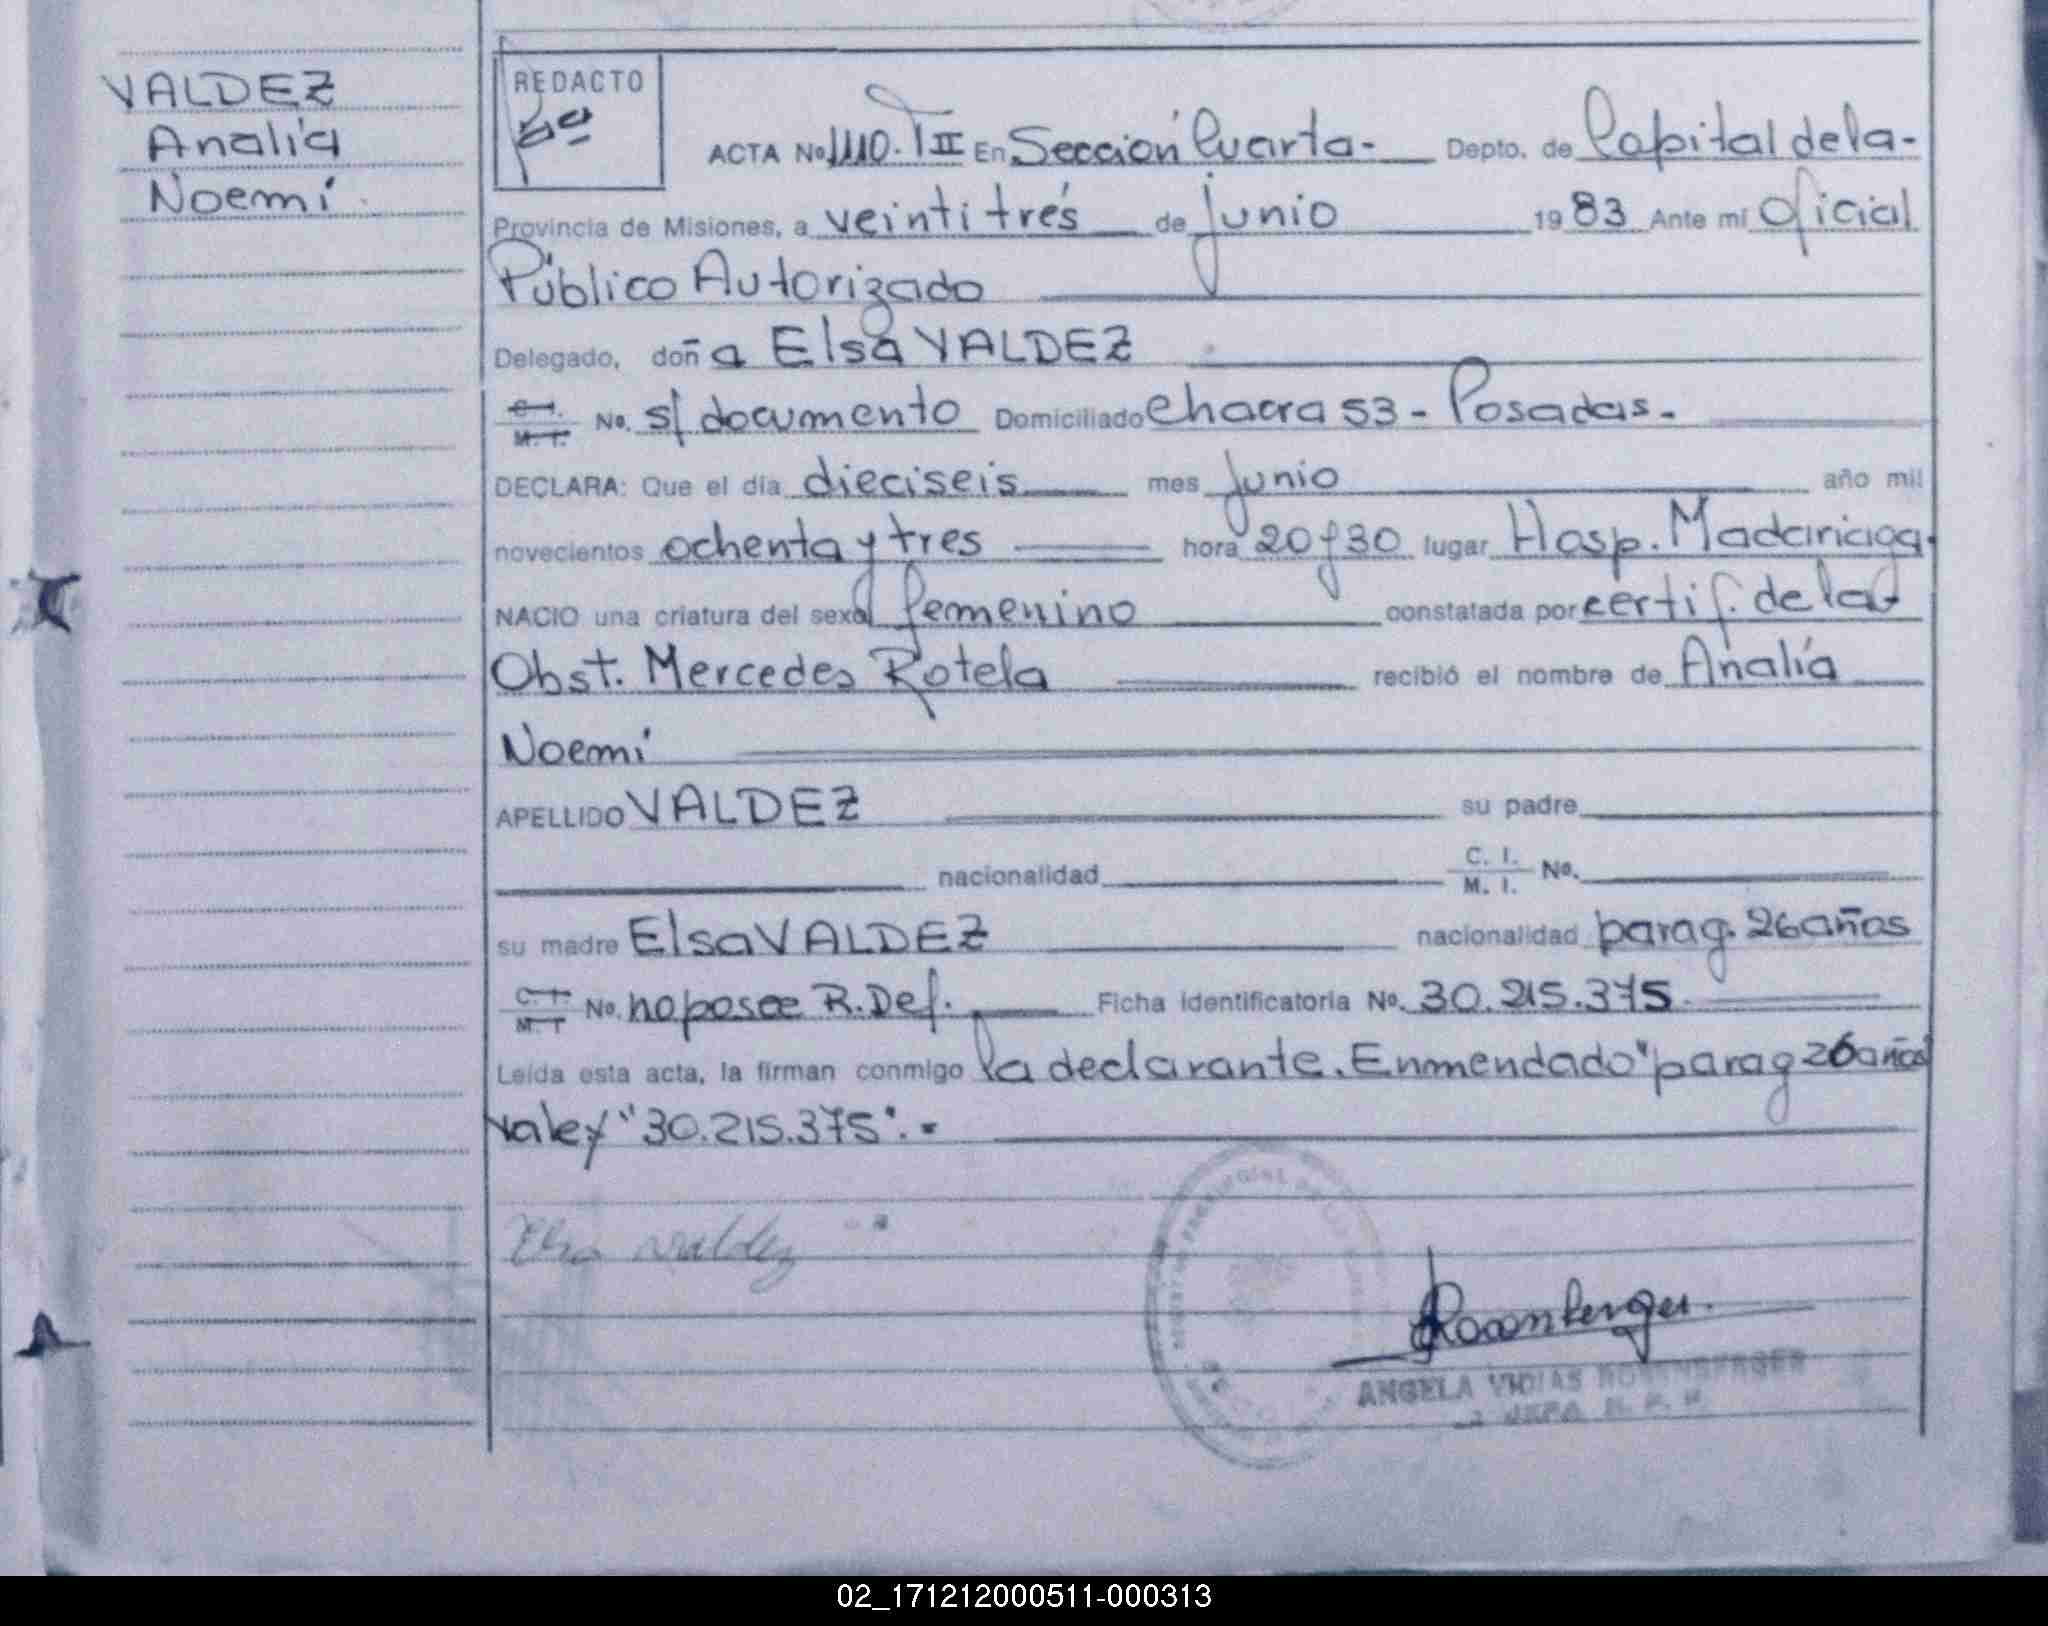 VALDEZ
Analía
Noemí
REDACTO
ACTA No 1110. T III En Sección Cuarta- Depto. de Capital de la-
Provincia de Misiones, a veintitrés de junio 1983 Ante mí Oficial
Público Autorizado
Delegado, doña Elsa VALDEZ
C. I. M. I. No. s/ documento Domiciliado Chacra 53 - Posadas.-
DECLARA: Que el día dieciseis mes junio año mil
novecientos ochenta y tres hora 20 y 30 lugar Hosp. Madariaga
NACIO una criatura del sexo femenino constatada por certif. de la
Obst. Mercedes Rotela recibió el nombre de Analía
Noemí
APELLIDO VALDEZ su padre
nacionalidad C. I. M. I. No.
su madre Elsa VALDEZ nacionalidad parag. 26 años
C. I. M. I No. no posee R. Def. Ficha identificatoria No. 30.215.375
Leída esta acta, la firman conmigo la declarante. Enmendado "parag 26 años
vale y "30.215.375".-
Elsa Valdez
ANGELA
02_171212000511-000313